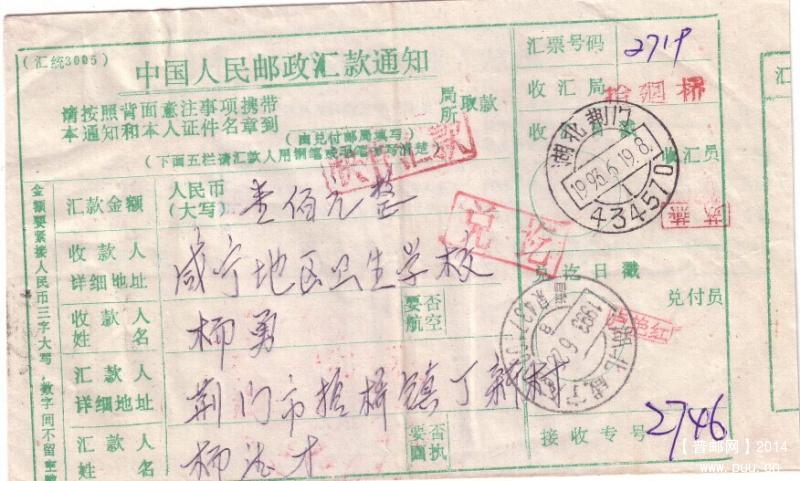 (汇统3005)
中国人民邮政汇款通知
请按照背面意注事项携带
本通知和本人证件名章到
局
所
取款
(由兑付邮局填写)
(下面五栏请汇款人用钢笔或毛笔书写清楚)
快件汇款
汇款金额
人民币
(大写)
壹佰元整
收款人
详细地址
咸宁地区卫生学校
收款人
姓名
柳勇
要否
航空
汇款人
详细地址
荆门市拾桥镇丁新村
汇款人
姓名
柳
才
要否
回执
金额要紧接人民币三字大写,数字间不留空
汇票号码
2719
收汇局
拾廻桥
收汇员
湖北荆门
1993.6.19.8
1
434570
兑讫
兑讫日戳
兑付员
卢艳红
湖北咸宁
1993
6
接收专号
2746
【普邮网】2014
www.puu.cn